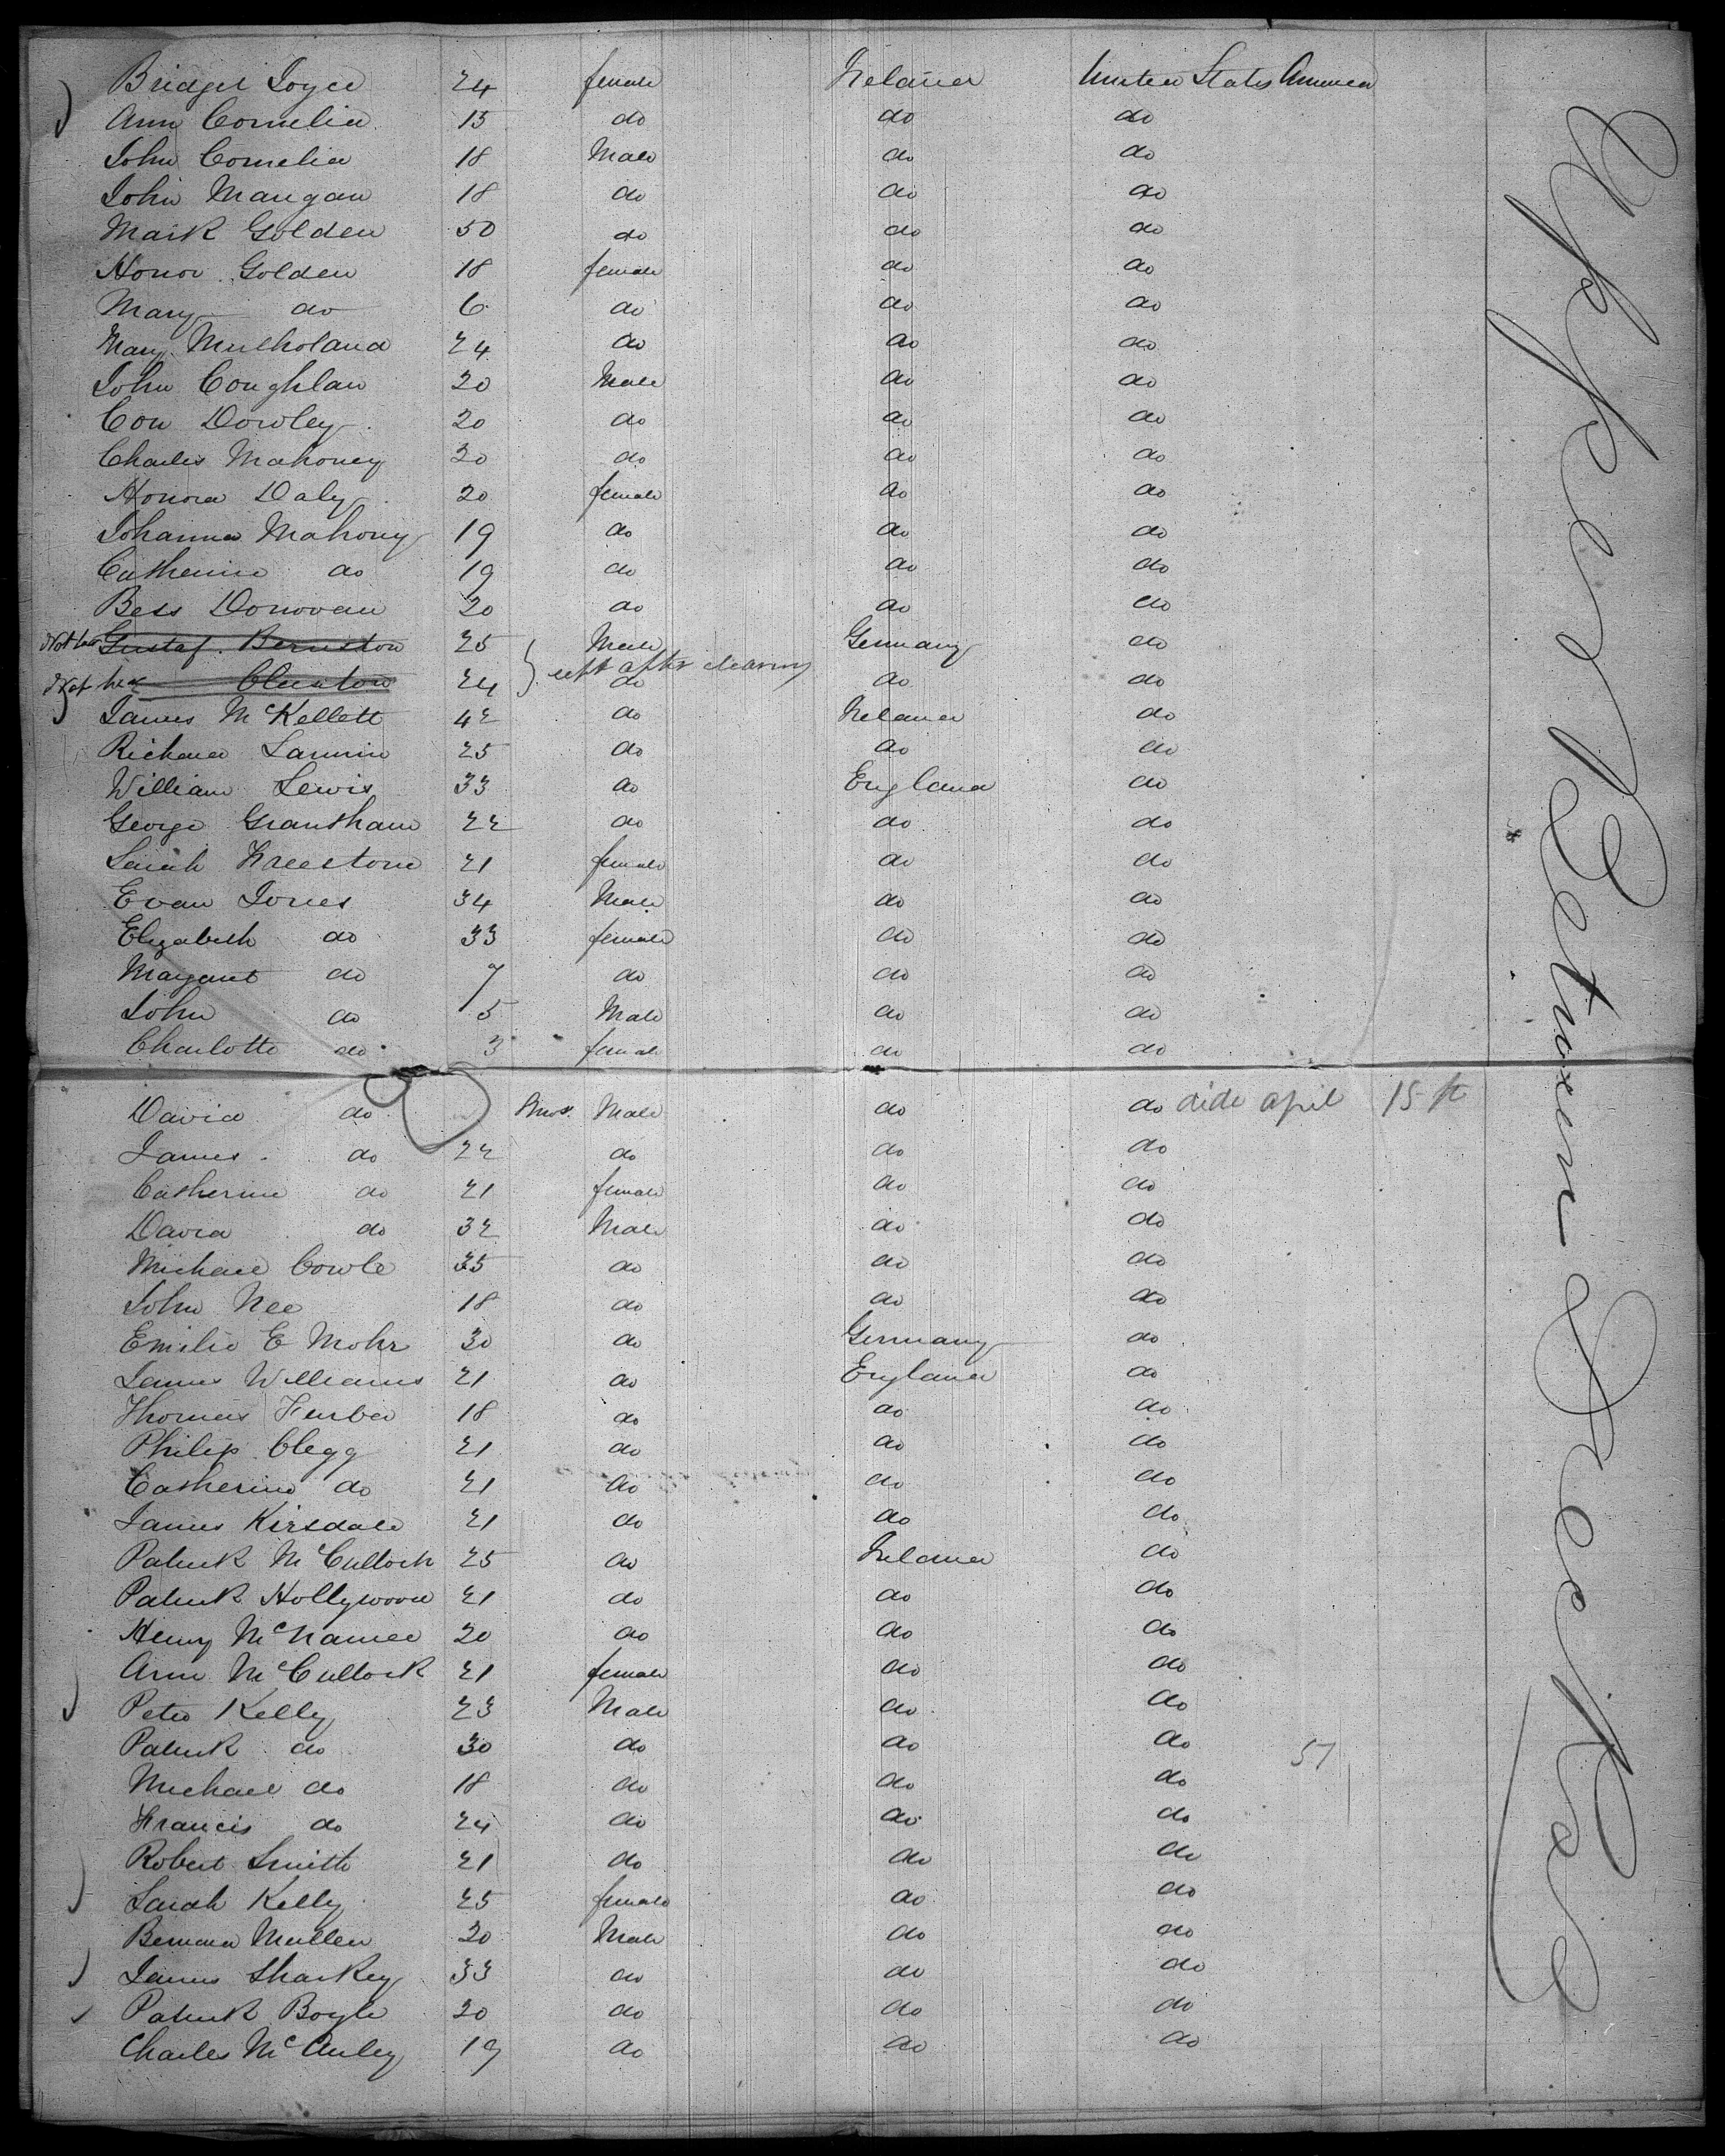 Bridget Joyce 24 female Ireland United States America
Ann Cornelia 15 do do do
John Cornelia 18 Male do do
John Mangan 18 do do do
Mark Golden 50 do do do
Honor Golden 18 female do do
Mary do 6 do do do
Mary Mulholand 24 do do do
John Coughlan 20 Male do do
Con Dowley 20 do do do
Charles Mahoney 20 do do do
Honora Daly 20 female do do
Johanna Mahony 19 do do do
Catherine do 19 do do do
Bess Donovan 20 do do do
Not her Gustaf Bernston 25 Male Germany do
left after clearing
Not her Clanton 24 do do do
James McKellett 42 do Ireland do
Richard Lannin 25 do do do
William Lewis 33 do England do
George Grantham 22 do do do
Sarah Freestone 21 female do do
Evan Jones 34 Male do do
Elizabeth do 33 female do do
Margaret do 7 do do do
John do 5 Male do do
Charlotte do 3 female do do
David do Mos. Male do do dide april 15th
James do 22 do do do
Catherine do 21 female do do
David do 32 Male do do
Michael Cowle 35 do do do
John Nee 18 do do do
Emilie E Mohr 30 do Germany do
James Williams 21 do England do
Thomas Furber 18 do do do
Philip Clegg 21 do do do
Catherine do 21 do do do
James Kirsdale 21 do do do
Patrick McCulloch 25 do Ireland do
Patrick Hollywood 21 do do do
Henry McNamee 20 do do do
Ann McCullock 21 female do do
Peter Kelly 23 Male do do
Patrick do 30 do do do
57
Michael do 18 do do do
Francis do 24 do do do
Robert Smith 21 do do do
Sarah Kelly 25 female do do
Bernard Mullen 20 Male do do
James Sharkey 33 do do do
Patrick Boyle 20 do do do
Charles McAuley 19 do do do
Upper Between Decks